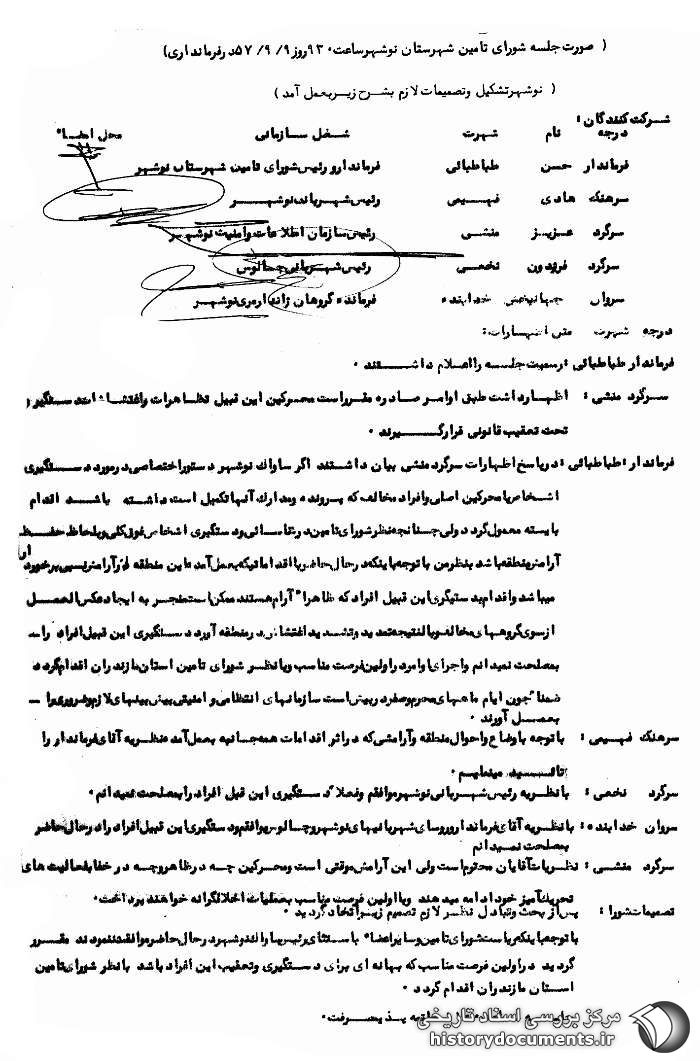 ( صورت جلسه شورای تامین شهرستان نوشهرساعت ۹۳۰ روز ۹/ ۹/ ۵۷ در فرمانداری)
( نوشهرتشکیل وتصمیمات لازم بشرح زیربعمل آمد )
شرکت کنندگان :
درجه نام شهرت شغل سازمانی محل امضاء
فرماندار حسن طباطبائی فرماندارو رئیس شورای تامین شهرستان نوشهر
سرهنگ هادی فهیمی رئیس شهربانی نوشهر
سرگرد عزیز منشی رئیس سازمان اطلاعات وامنیت نوشهر
سرگرد فریدون نخعی رئیس شهربانی چالوس
سروان جهانبخش خدابنده فرمانده گروهان ژاندارمری نوشهر
درجه شهرت متن اظهارات:
فرماندار طباطبائی : رسمیت جلسه رااعلام داشتند ۰
سرگرد منشی : اظهارداشت طبق اوامر صادره مقرراست محرکین این قبیل تظاهرات واغتشاشات دستگیر و
تحت تعقیب قانونی قرارگیرند ۰
فرماندار : طباطبائی : درپاسخ اظهارات سرگرد منشی بیان داشتند اگر ساواک نوشهر دستوراختصاصی درمورد دستگیری
اشخاص یا محرکین اصلی وافراد مخالف که پرونده ومدارک آنها تکمیل است داشته باشد اقدام
بایسته معمول گردد ولی چنانچه نظرشورای تامین در شناسائی ودستگیری اشخاص فوق کلی وبلحاظ حفظ
آرامش منطقه باشد بنظرمن باتوجه باینکه درحال حاضربا اقداماتیکه بعمل آمده این منطقه از آرامش نسبی برخوردار
میباشد واقدام بدستگیری این قبیل افراد که ظاهرا" آرام هستند ممکن است منجر به ایجاد عکس العمل
ازسوی گروههای مخالف وبالنتیجه تمدید وتشدید اغتشاش در منطقه آورد دستگیری این قبیل افراد را
بمصلحت نمیدانم واجرای اوامر در اولین فرصت مناسب وبا نظر شورای تامین استان مازندران اقدام گردد
ضمنا" چون ایام ماههای محرم وصفر درپیش است سازمانهای انتظامی و امنیتی پیش بینیهای لازم وضروری را
بعمل آورند ۰
سرهنگ فهیمی : باتوجه باوضاع واحوال منطقه وآرامشی که دراثر اقدامات همه جانبه بعمل آمده نظریه آقای فرماندار را
تائید مینمایم ۰
سرگرد نخعی : بانظریه رئیس شهربانی نوشهرموافقم وفعلا" دستگیری این قبیل افراد را بمصلحت نمیدانم ۰
سروان خدابنده : بانظریه آقای فرماندار وروسای شهربانیهای نوشهر وچالوس موافقم ودستگیری این قبیل افراد را درحال حاضر
بمصلحت نمیدانم
سرگرد منشی : نظریات آقایان محترم است ولی این آرامش موقتی است ومحرکین چه درظاهر وچه در خفا بفعالیت های
تحریک آمیز خود ادامه میدهند وبا اولین فرصت مناسب بعملیات اخلالگرانه خواهند پرداخت۰
تصمیمات شورا : پس از بحث وتبادل نظر لازم تصمیم زیر اتخاذ گردید ۰
باتوجه باینکه ریاست شورای تامین وسایر اعضاء باستثنای رئیس ساواک نوشهر درحال حاضر موافقت ننمودند مقرر
گردید در اولین فرصت مناسب که بهانه ای برای دستگیری وتعقیب این افراد باشد با نظر شورای تامین
استان مازندران اقدام گردد ۰
پذیرفت۰
مرکز بررسی اسناد تاریخی
historydocuments.ir